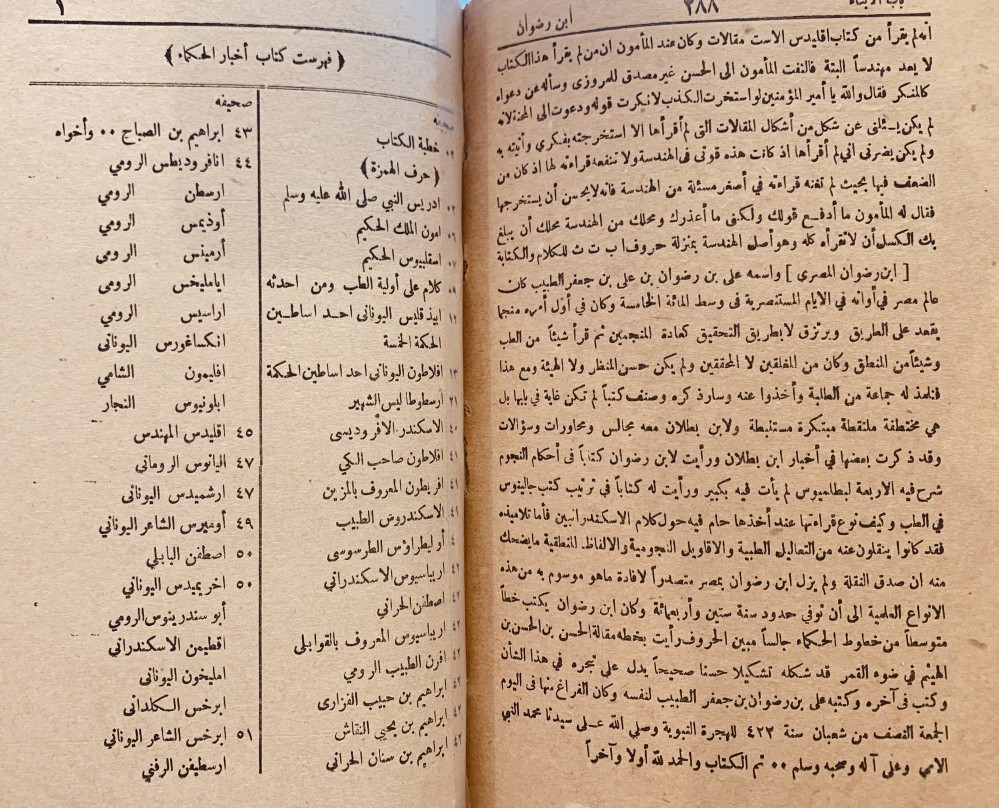 باب الابناء
٢٨٨
ابن رضوان
أنه لم يقرأ من كتاب اقليدس الاست مقالات وكان عند المأمون ان من لم يقرأ هذا الكتاب
لا يعد مهندساً البتة فالتفت المأمون الى الحسن غير مصدق للمروزى وسأله عن دعواه
كالمنكر فقال والله يا أمير المؤمنين لو استخرت الكذب لانكرت قوله ودعوت الى المحنة لانه
لم يكن يسئلنى عن شكل من أشكال المقالات التى لم أقرأها الا استخرجته بفكرى وأتيته به
ولم يكن يضرنى انى لم أقرأها اذ كانت هذه قوتى فى الهندسة ولا تنفعه قراءته لها اذ كان من
الضعف فيها بحيث لم تغنه قراءته في أصغر مسئلة من الهندسة فانه لا يحسن أن يستخرجها
فقال له المأمون ما أدفع قولك ولكنى ما أعذرك ومحلك من الهندسة محلك أن يبلغ
بك الكسل أن لا تقرأه كله وهو أصل الهندسة بمنزلة حروف ا ب ت ث للكلام والكتابة
[ ابن رضوان المصرى ] واسمه على بن رضوان بن على بن جعفر الطبيب كان
عالم مصر في أوانه في الايام المستنصرية فى وسط المائة الخامسة وكان في أول أمره منجما
يقعد على الطريق ويرتزق لا بطريق التحقيق كعادة المنجمين ثم قرأ شيئاً من الطب
وشيئاً من المنطق وكان من المغلقين لا المحققين ولم يكن حسن المنظر ولا الهيئة ومع هذا
فتلمذ له جماعة من الطلبة وأخذوا عنه وسار ذكره وصنف كتباً لم تكن غاية في بابها بل
هي مختطفة ملتقطة مبتكرة مستنبطة ولابن بطلان معه مجالس ومحاورات وسؤالات
وقد ذكرت بعضها في أخبار ابن بطلان ورأيت لابن رضوان كتاباً فى أحكام النجوم
شرح فيه الاربعة لبطلميوس لم يأت فيه بكبير ورأيت له كتاباً في ترتيب كتب جالينوس
في الطب وكيف نوع قراءتها عند أخذها حام فيه حول كلام الاسكندرانيين فأما تلاميذه
فقد كانوا ينقلون عنه من التعاليل الطبية والاقاويل النجومية والالفاظ المنطقية مايضحك
منه ان صدق النقلة ولم يزل ابن رضوان بمصر متصدراً لافادة ماهو موسوم به من هذه
الانواع العلمية الى أن توفي حدود سنة ستين وأربعمائة وكان ابن رضوان يكتب خطاً
متوسطاً من خطوط الحكماء جالساً مبين الحروف رأيت بخطه مقالة الحسن بن الحسن بن
الهيثم في ضوء القمر قد شكله تشكيلا حسنا صحيحاً يدل على تبحره في هذا الشأن
وكتب في آخره وكتبه على بن رضوان بن جعفر الطبيب لنفسه وكان الفراغ منها فى اليوم
الجمعة النصف من شعبان سنة ٤٢٢ للهجرة النبوية وصلي الله على سيدنا محمد النبي
الامي وعلى آله وصحبه وسلم ٠٠ تم الكتاب والحمد لله أولا وآخراً
١
﴿ فهرست كتاب أخبار الحكماء ﴾
صحيفه
خطبة الكتاب
﴿ حرف الهمزة ﴾
ادريس النبي صلى الله عليه وسلم
امون الملك الحكيم
اسقلبيوس الحكيم
كلام على أولية الطب ومن احدثه
١٢ ابيذقليس اليونانى احد اساطين
الحكمة الخمسة
١٣ افلاطون اليونانى احد اساطين الحكمة
٢١ أرسطوطاليس الشهير
الاسكندر الافروديسى
٤١ افلاطون صاحب الكي
٤١ افريطون المعروف بالمزين
٤١ الاسكندروس الطبيب
أوليطراوس الطرسوسى
٤٢ اريباسيوس الاسكندراني
٤٢ اصطفن الحراني
٤٢ اريباسيوس المعروف بالقوابلى
افرن الطبيب الرومي
٤٢ ابراهيم بن حبيب الفزارى
٤٢ ابراهيم بن يحيي النقاش
٤٢ ابراهيم بن سنان الحرانى
صحيفه
٤٣ ابراهيم بن الصباح ٠٠ وأخواه
٤٤ انافروديطس الرومي
ارسطن الرومي
أوذيمس الرومي
أرمينس الرومى
ايامليخس الرومى
اراسيس الرومي
انكساغورس اليونانى
افليمون الشامي
ابلونيوس النجار
٤٥ اقليدس المهندس
٤٧ اليانوس الرومانى
٤٧ ارشميدس اليونانى
٤٩ أوميرس الشاعر اليوناني
٥٠ اصطفن البابلي
٥٠ اخريميدس اليوناني
أبو سندرينوس الرومي
اقطيمن الاسكندراني
امليخون اليونانى
ابرخس الكلدانى
٥١ ابرخس الشاعر اليوناني
ارسطيفن الرفني